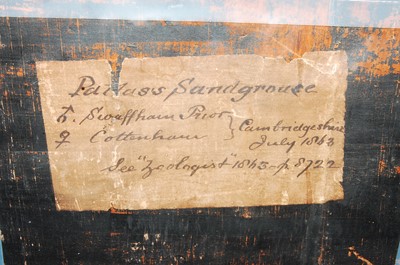 Pallass Sandgrouse
♂. Swaffham Prior } Cambridgeshire
♀ Cottenham } July 1863
See "Zoologist" 1863 - p 8722